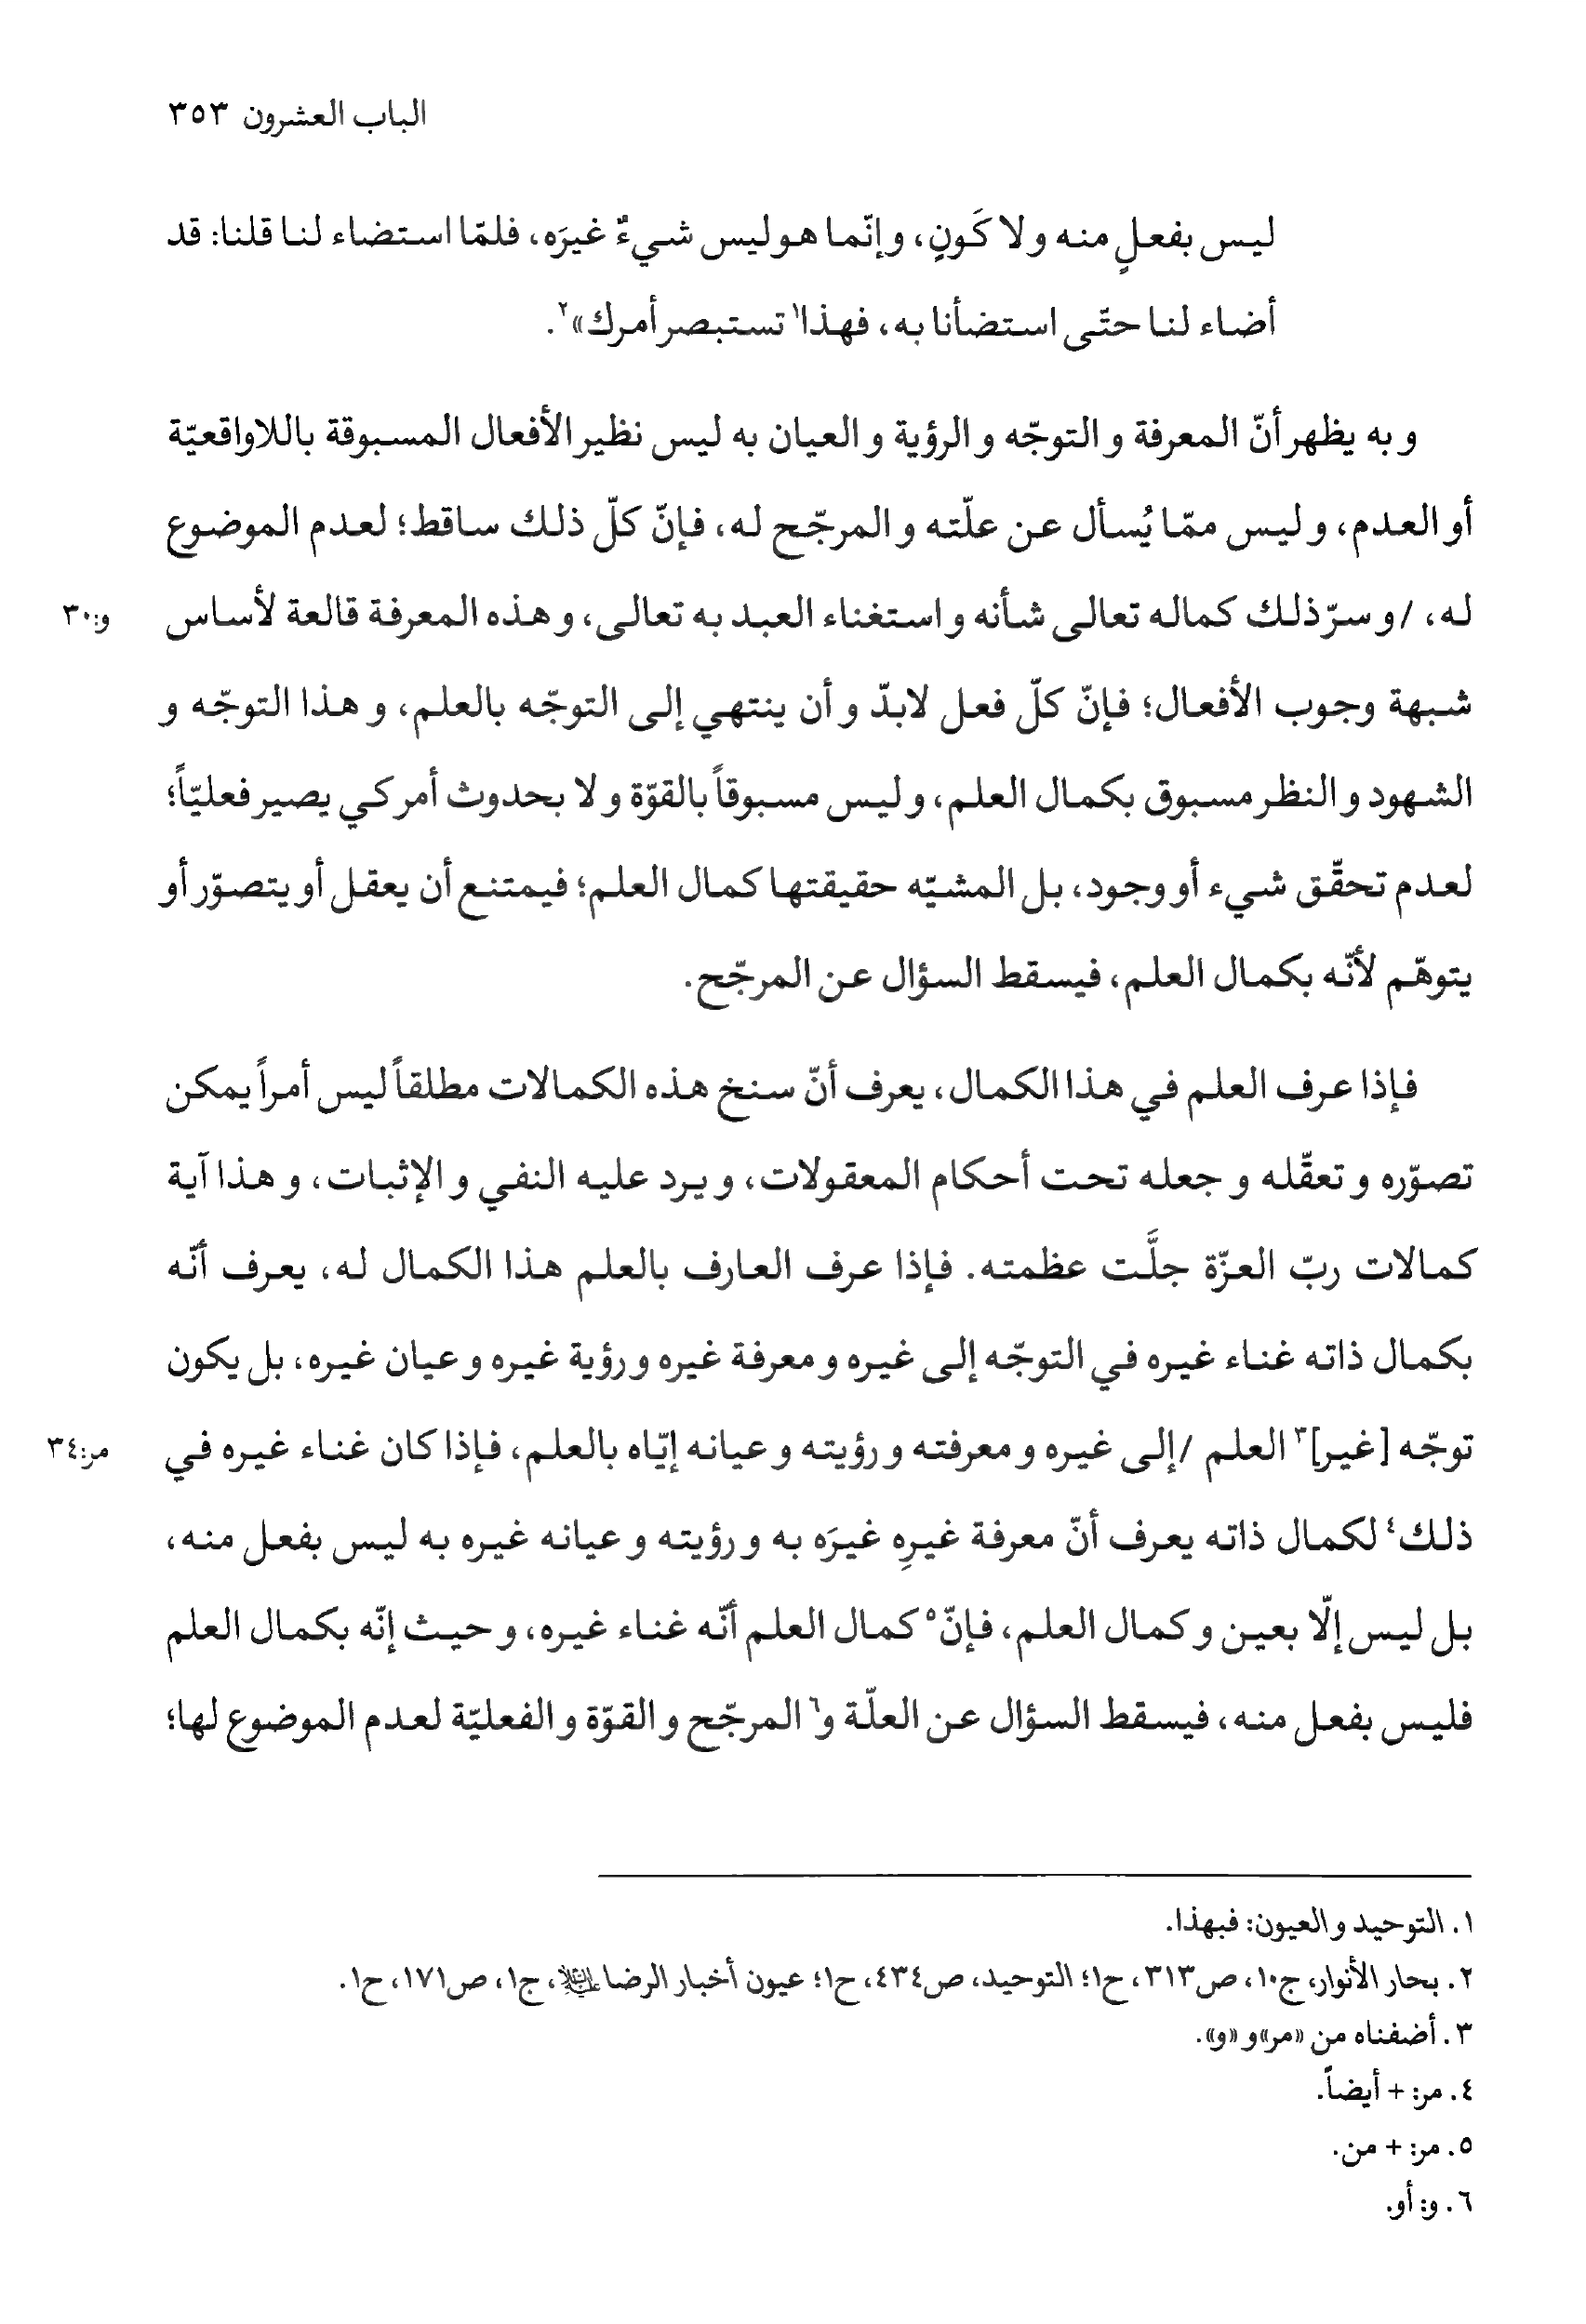 الباب العشرون ٣٥٣
ليس بفعلٍ منه و لا كَونٍ، و إنّما هو ليس شيءٌ غيرَه، فلمّا استضاء لنا قلنا: قد
أضاء لنا حتّى استضأنا به، فهذا١ تستبصر أمرك»٢.
و به يظهر أنّ المعرفة و التوجّه و الرؤية و العيان به ليس نظير الأفعال المسبوقة باللاواقعيّة
أو العدم، و ليس ممّا يُسأل عن علّته و المرجّح له، فإنّ كلّ ذلك ساقط؛ لعدم الموضوع
له، /و سرّ ذلك كماله تعالى شأنه و استغناء العبد به تعالى، و هذه المعرفة قالعة لأساس و:٣٠
شبهة وجوب الأفعال؛ فإنّ كلّ فعل لابدّ و أن ينتهي إلى التوجّه بالعلم، و هذا التوجّه و
الشهود و النظر مسبوق بكمال العلم، و ليس مسبوقاً بالقوّة و لا بحدوث أمر كي يصير فعليّاً؛
لعدم تحقّق شيء أو وجود، بل المشيّه حقيقتها كمال العلم؛ فيمتنع أن يعقل أو يتصوّر أو
يتوهّم لأنّه بكمال العلم، فيسقط السؤال عن المرجّح.
فإذا عرف العلم في هذا الكمال، يعرف أنّ سنخ هذه الكمالات مطلقاً ليس أمراً يمكن
تصوّره و تعقّله و جعله تحت أحكام المعقولات، و يرد عليه النفي و الإثبات، و هذا آية
كمالات ربّ العزّة جلَّت عظمته. فإذا عرف العارف بالعلم هذا الكمال له، يعرف أنّه
بكمال ذاته غناء غيره في التوجّه إلى غيره و معرفة غيره و رؤية غيره و عيان غيره، بل يكون
توجّه [غير]٣ العلم /إلى غيره و معرفته و رؤيته و عيانه إيّاه بالعلم، فإذا كان غناء غيره في مر:٣٤
ذلك٤ لكمال ذاته يعرف أنّ معرفة غيرِه غيرَه به و رؤيته و عيانه غيره به ليس بفعل منه،
بل ليس إلّا بعين و كمال العلم، فإنّ٥ كمال العلم أنّه غناء غيره، و حيث إنّه بكمال العلم
فليس بفعل منه، فيسقط السؤال عن العلّة و٦ المرجّح و القوّة و الفعليّة لعدم الموضوع لها؛
١. التوحيد و العيون: فبهذا.
٢. بحار الأنوار، ج١٠، ص٣١٣، ح١؛ التوحيد، ص٤٣٤، ح١؛ عيون أخبار الرضا عليه السلام، ج١، ص١٧١، ح١.
٣. أضفناه من «مر» و «و».
٤. مر: + أيضاً.
٥. مر: + من.
٦. و: أو.